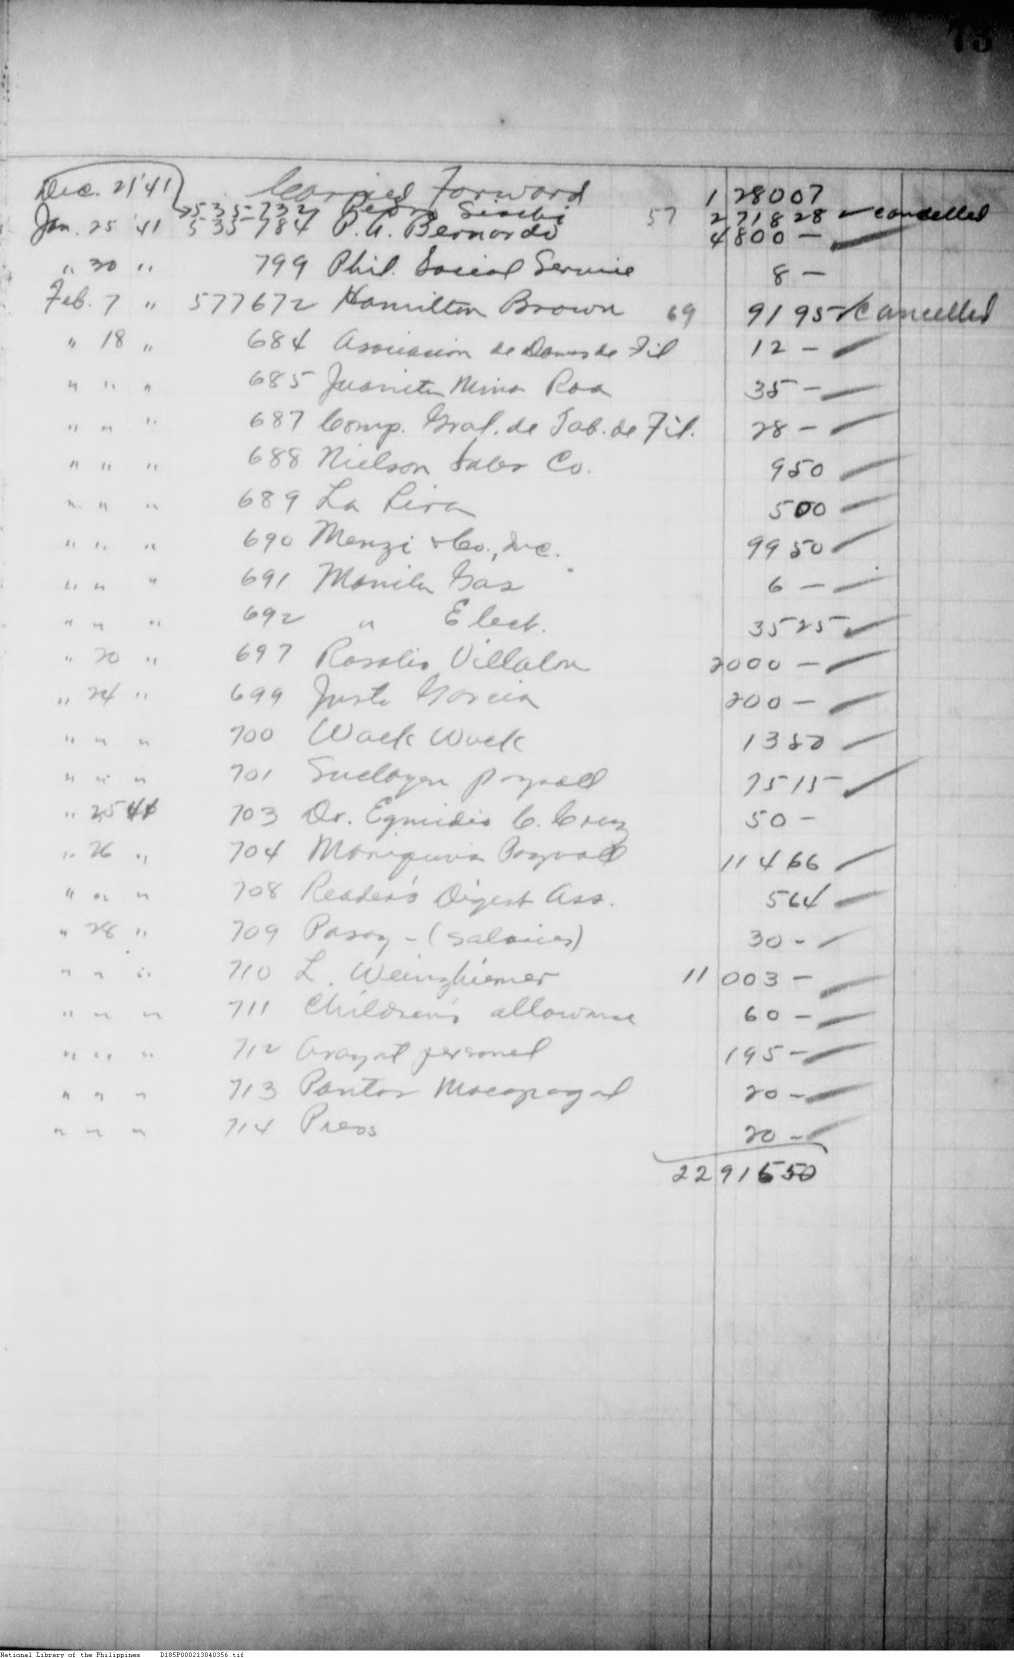 73
Carried Forward 1 280 07
Dec. 21 '41 535732 Pedro 57 2 718 28 cancelled
Jan. 25 '41 535784 P. A. Bernardo 4 800 —
" 30 " 799 Phil. Social Service 8 —
Feb. 7 " 577672 Hamilton Brown 69 91 95 Cancelled
" 18 " 684 Asociacion de Damas de Fil 12 —
" " " 685 Juanita Mina Roa 35 —
" " " 687 Comp. Gral. de Tab. de Fil. 28 —
" " " 688 Nielson Sales Co. 9 50
" " " 689 La 5 00
" " " 690 Menzi & Co., Inc. 99 50
" " " 691 Manila Gas 6 —
" " " 692 " Elect. 35 25
" 20 " 697 Rosalio Villalon 2 000 —
" 24 " 699 Justo Garcia 200 —
" " " 700 Wack Wack 13 50
" " " 701 payroll 75 15
" 25 41 703 Dr. Egmidio C. Cruz 50 —
" 26 " 704 Mariquina Payroll 114 66
" " " 708 Reader's Digest Ass. 5 64
" 28 " 709 Pasay — (Salaries) 30 —
" " " 710 L. Weinzhiemer 11 003 —
" " " 711 Children's allowance 60 —
" " " 712 Arayat personel 195 —
" " " 713 Pastor Macapagal 20 —
" " " 714 Press 20 —
22 916 50
National Library of the Philippines D185P000213040356.tif